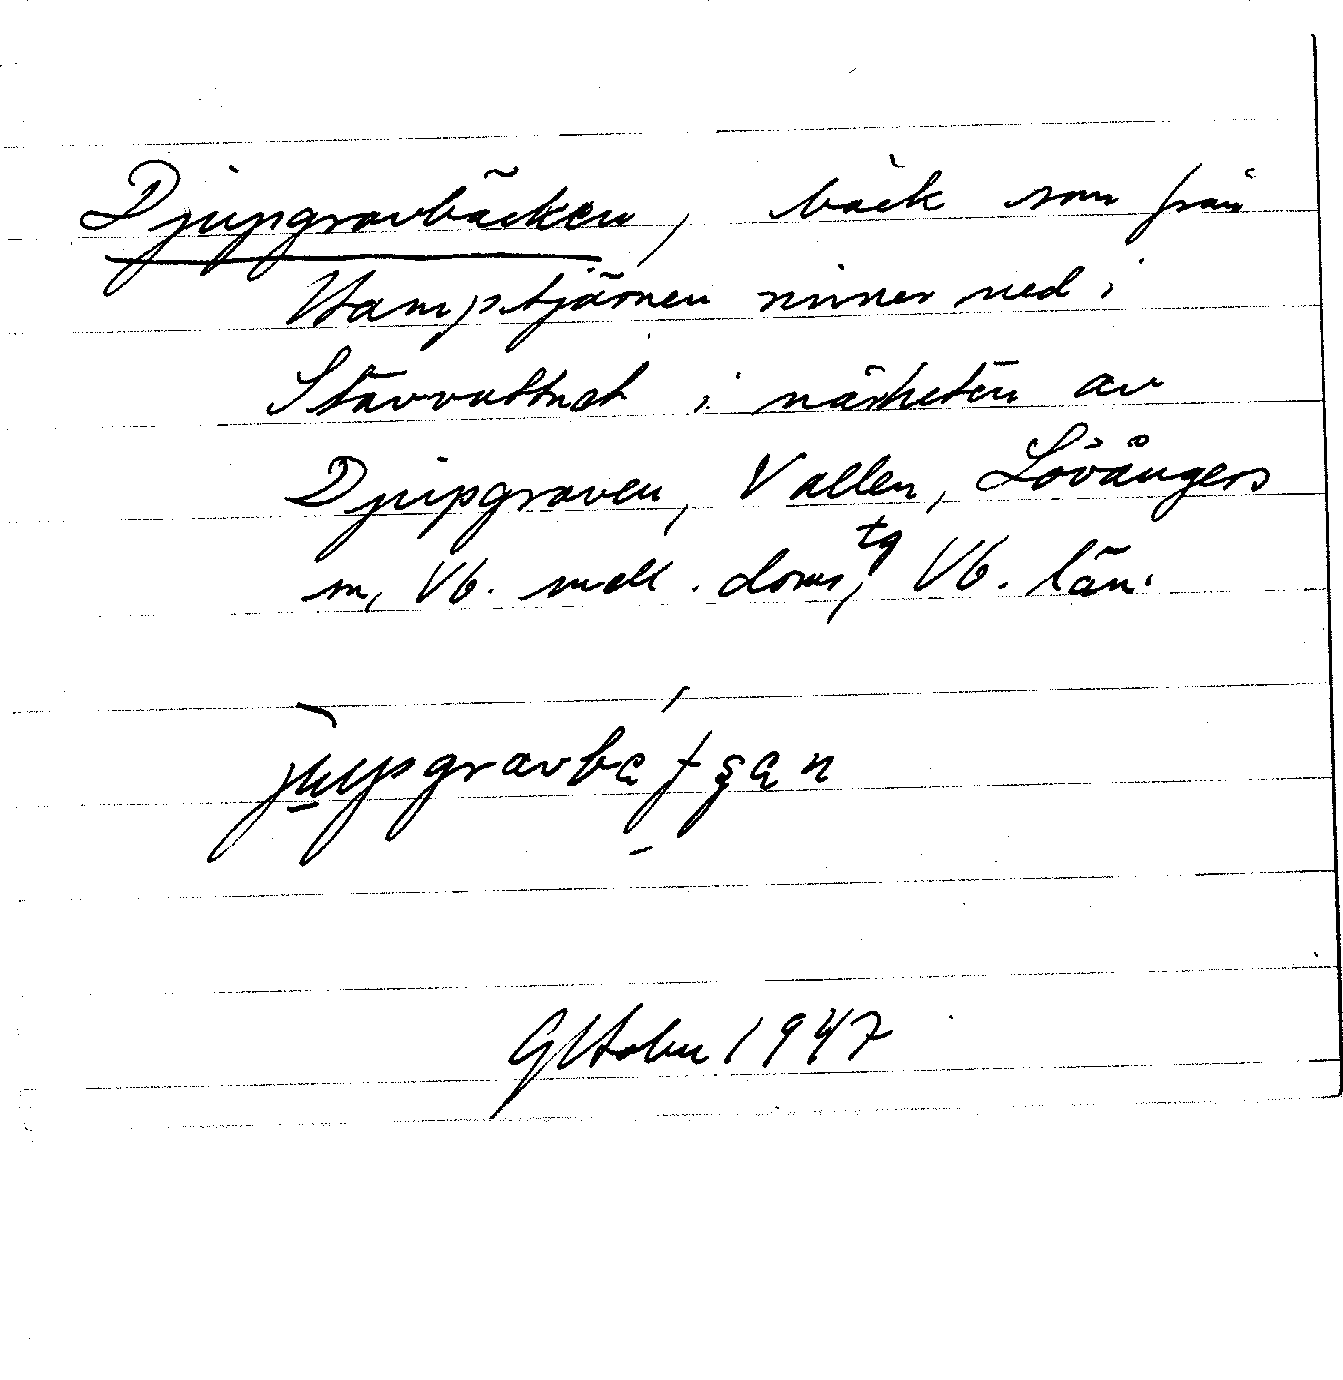 Djupgravbäcken, bäck som från
Stamptjärnen rinner ned i
Stavvattnet i närheten av
Djupgraven, Vallen, Lövångers
sn, Vb. mell. doms,tg Vb. län.
1947